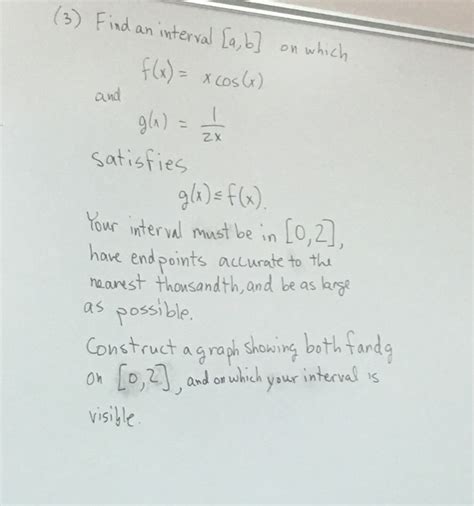 (3) Find an interval [a,b] on which
f(x) = x cos(x)
and
g(x) = 1/2x
satisfies
g(x) ≤ f(x).
Your interval must be in [0,2],
have endpoints accurate to the
nearest thousandth, and be as large
as possible.
Construct a graph showing both f and g
on [0,2], and on which your interval is
visible.